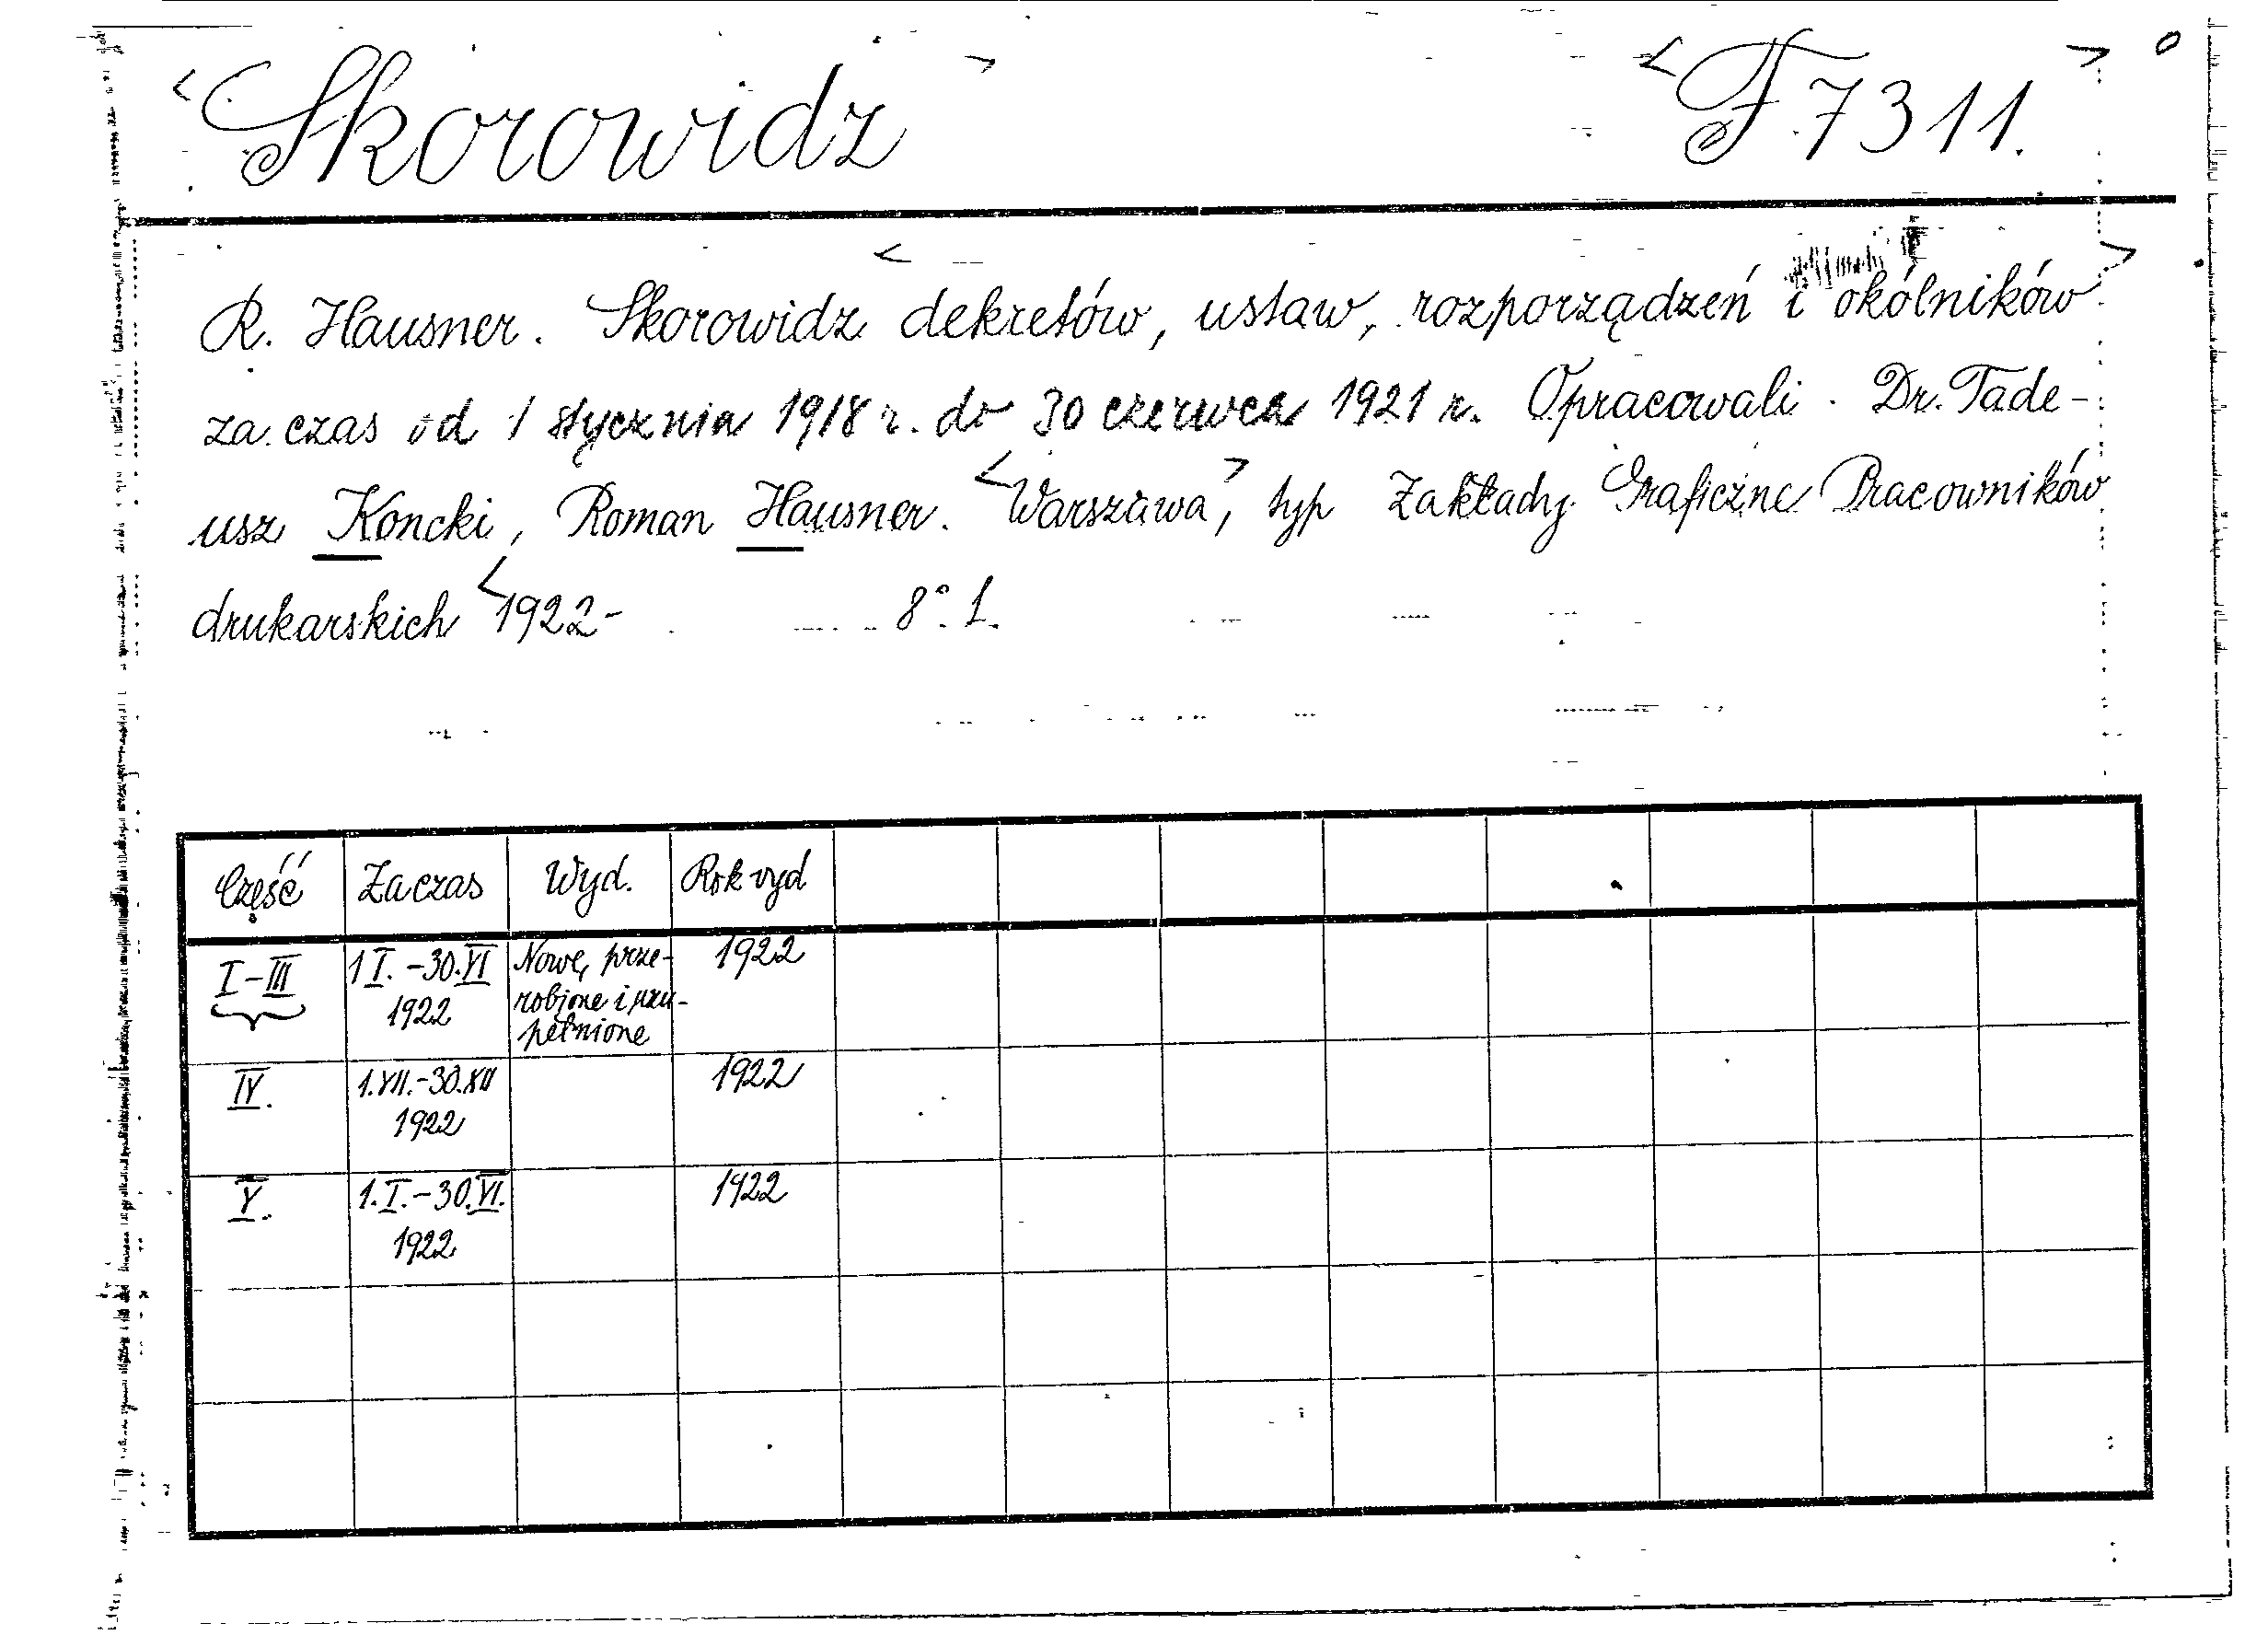 <Skorowidz> <F. 7311.> 0
R. Hausner. Skorowidz <dekretów, ustaw, rozporządzeń i okólników>
za czas od 1 stycznia 1918 r. do 30 czerwca 1921 r. Opracowali Dr. Tade-
usz Koncki, Roman Hausner. <Warszawa>, typ Zakłady Graficzne Pracowników
drukarskich <1922- 8° L.
Część Za czas Wyd. Rok wyd
I-III 1 I. -30.VI Nowe, prze- 1922
1922 robione i uzu-
pełnione
IV. 1.VII.-30.XII 1922
1922
V. 1.I.-30.VI. 1922
1922